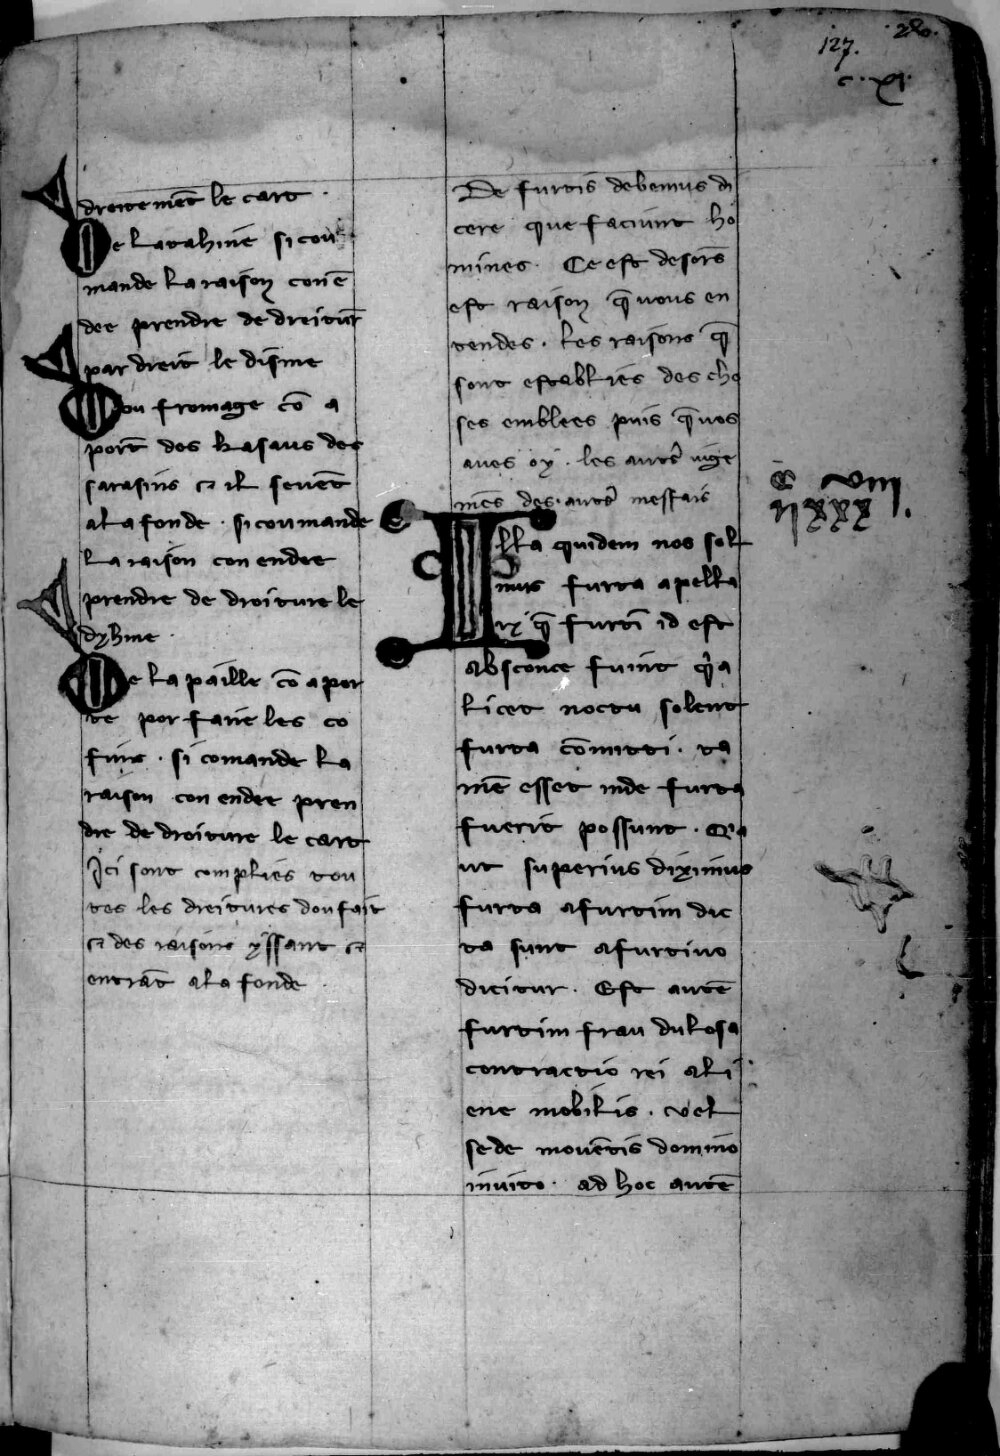 127.
c · xi ·
droitemēt le cart ·
De la tahine si cou
mande la raison con ē
dee prendre de dreitur̄
par dreit le disme
Dou fromage cō a
port̄ des kasaus des
sarasins et il sevēt
a la fonde · si coumande
la raison con endee
prendre de droiture le
dyhme ·
De la paille cō a por
te por faire les co
fins · si comande la
raison con endee pren
dre de droiture le cart
Ici sont complies tou
tes les dreitures dou fait
et des raisons yssant et
entrāt a la fonde ·
De furtis debemus di
cere que faciunt ho
mines · Ce est desors̄
est raison q̄ vous en
tendes · les raisons q̄
sont establies des cho
ses emblees puis q̄ vos
aves oy · les autrs̄ iuge
mēs des · autrs̄ mesfais
Illa quidem nos sol
imus furta apella
ri q̄ furti id est
absconce fuint q̄a
licet noctu solent
furta cōmitti · ta
mē esset inde furta
fuerit possunt · Q̄a
ut superius diximus
furta a furtim dic
ta sunt a furtivo
dicitur · Est autē
furtim frau dulosa
contractio rei ali
ene mobilis · vel
se de movētis domino
invito · ad hoc autē